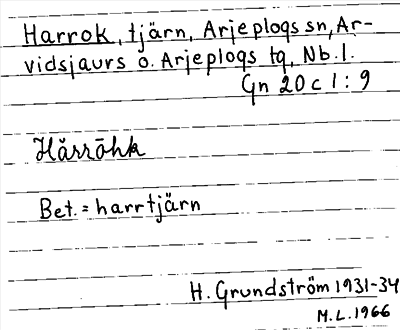 Harrok, tjärn, Arjeplogs sn, Ar-
vidsjaurs o. Arjeplogs tg, Nb. l.
Gn 20 c 1 : 9
Hărrōhk
Bet. = harrtjärn
H. Grundström 1931-34
M.L. 1966